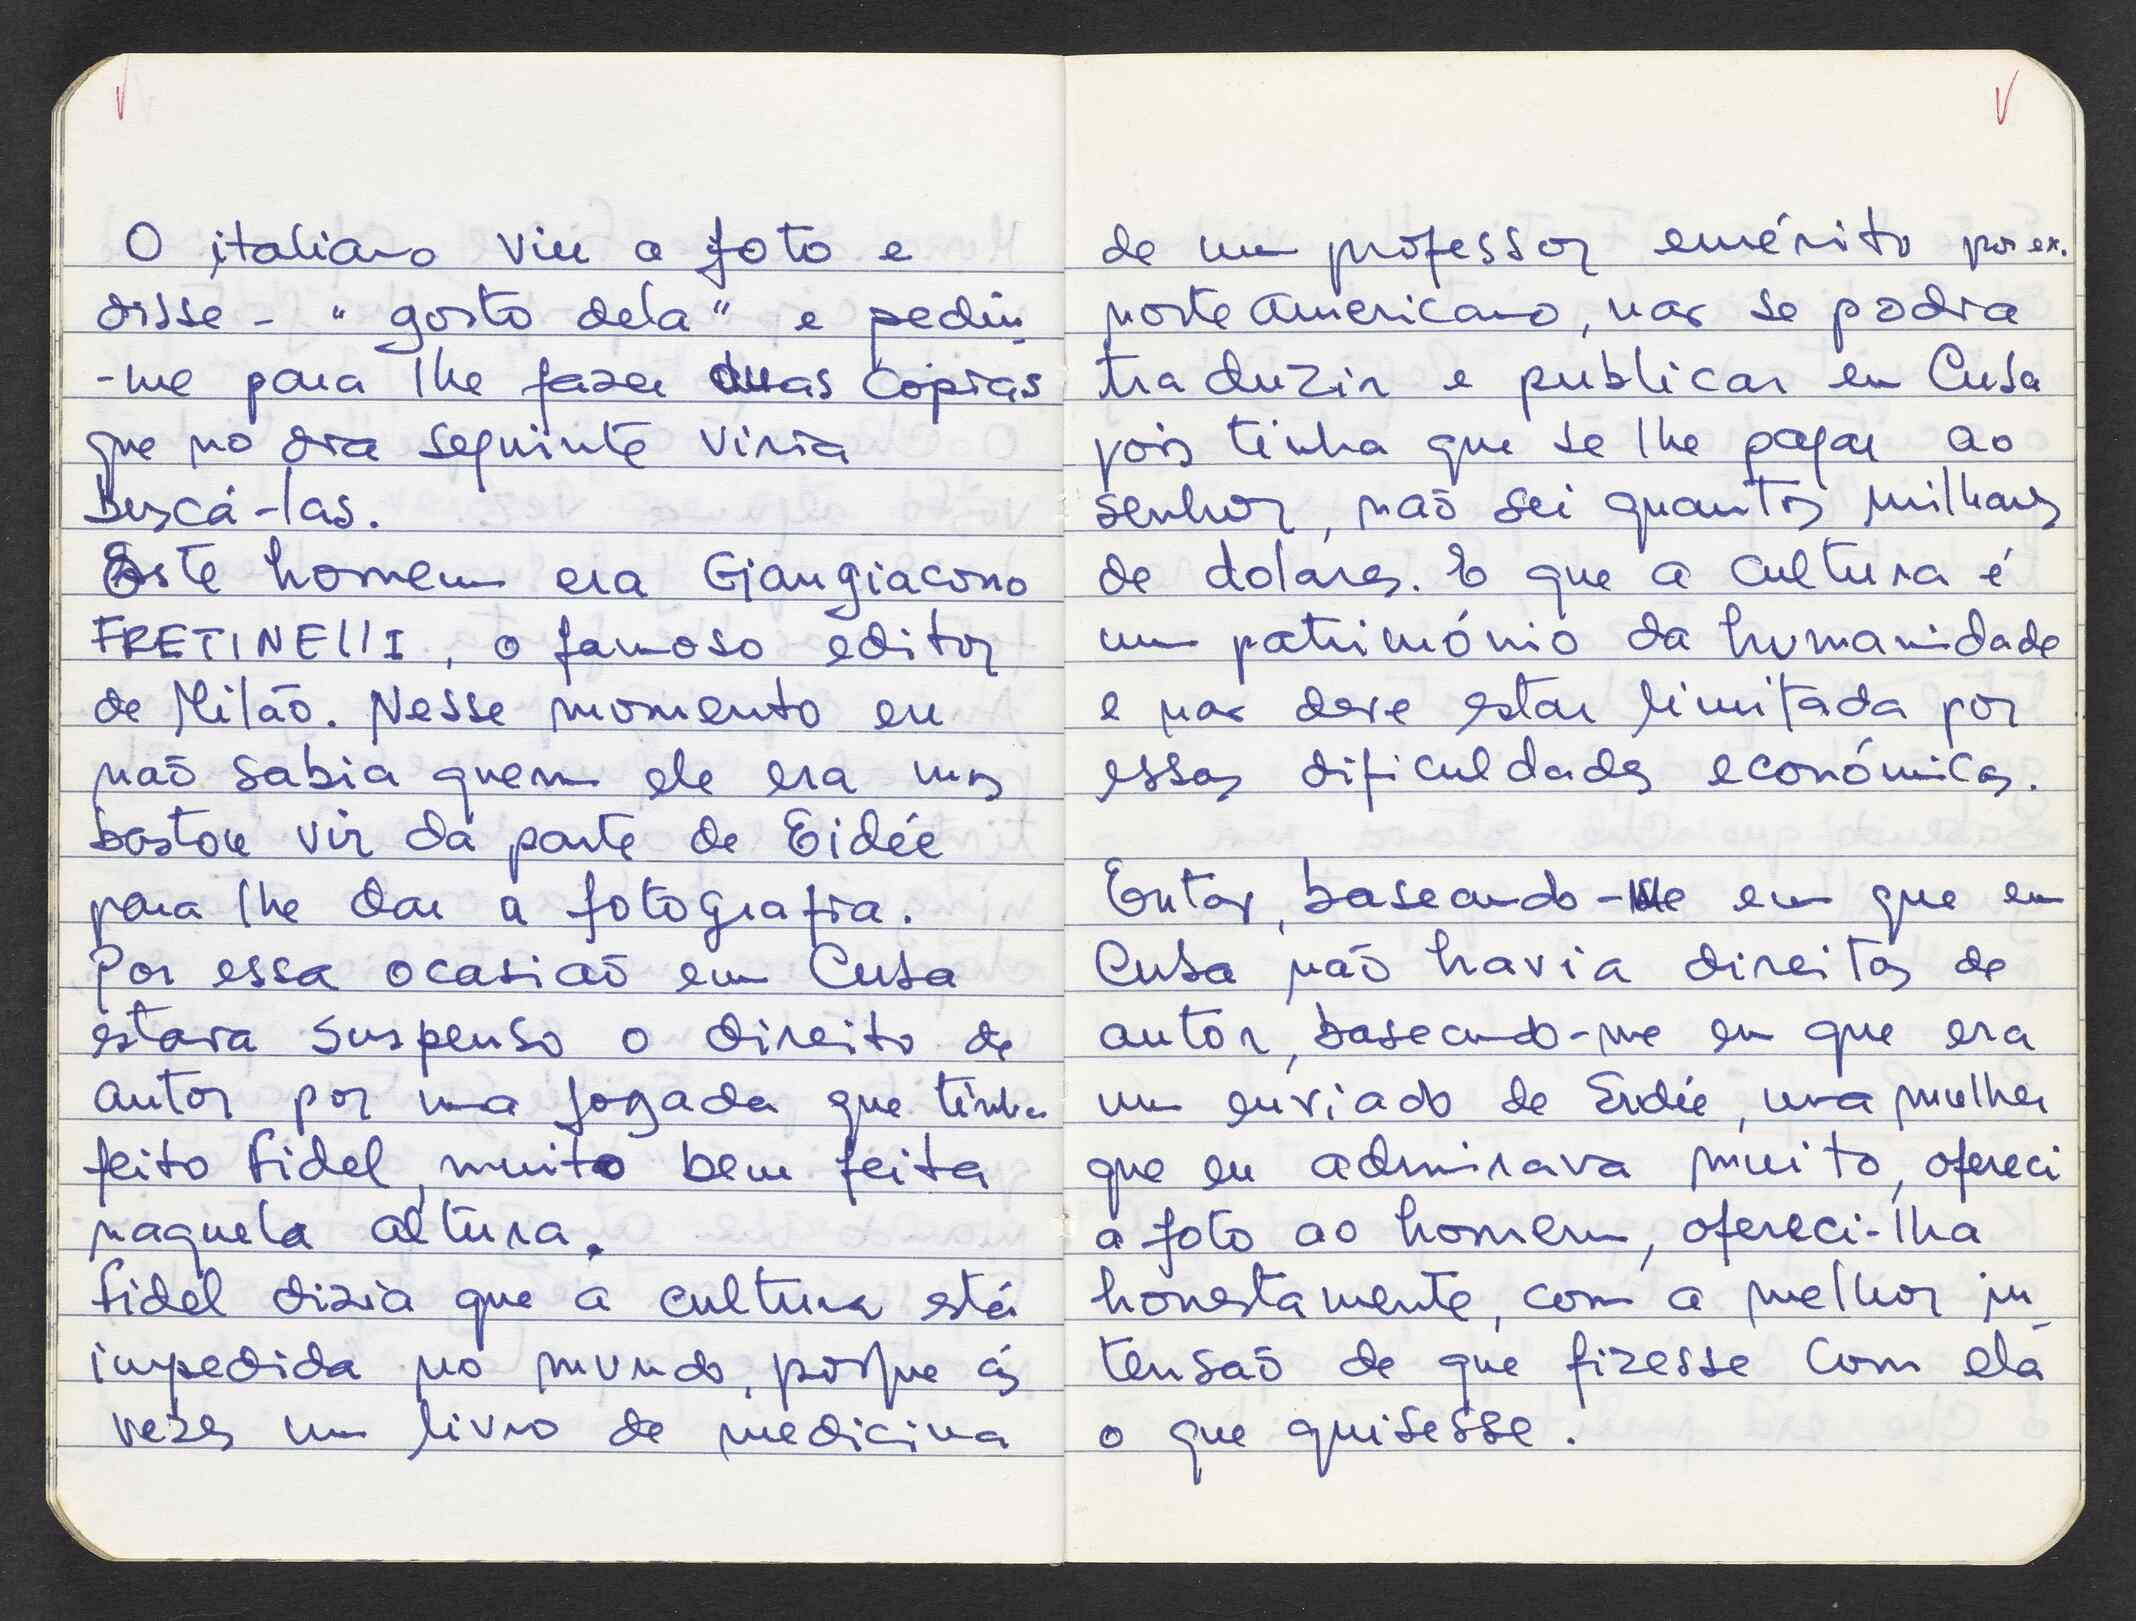 O italiano viu a foto e
disse - "gosto dela" e pediu
-me para lhe fazer duas cópias
que no dia seguinte viria
buscá-las.
Este homem era Giangiacomo
FRETINELLI, o famoso editor
de Milão. Nesse momento eu
não sabia quem ele era mas
bastou vir da parte de Eidée
para lhe dar a fotografia.
Por essa ocasião em Cuba
estava suspenso o direito de
autor por uma jogada que tinha
feito Fidel, muito bem feita
naquela altura.
Fidel dizia que a cultura está
impedida no mundo, porque ás
vezes um livro de medicina
de um professor emérito por ex.
norte americano, não se podia
traduzir e publicar em Cuba
pois tinha que se lhe pagar ao
senhor, não sei quantos milhares
de dolares. E que a cultura é
um património da humanidade
e não deve estar limitada por
essas dificuldades económicas.
Então, baseando-me em que em
Cuba não havia direitos de
autor, baseando-me em que era
um enviado de Eidée, uma mulher
que eu admirava muito, ofereci
a foto ao homem, ofereci-lha
honestamente, com a melhor in_
tensão de que fizesse com ela
o que quisesse.